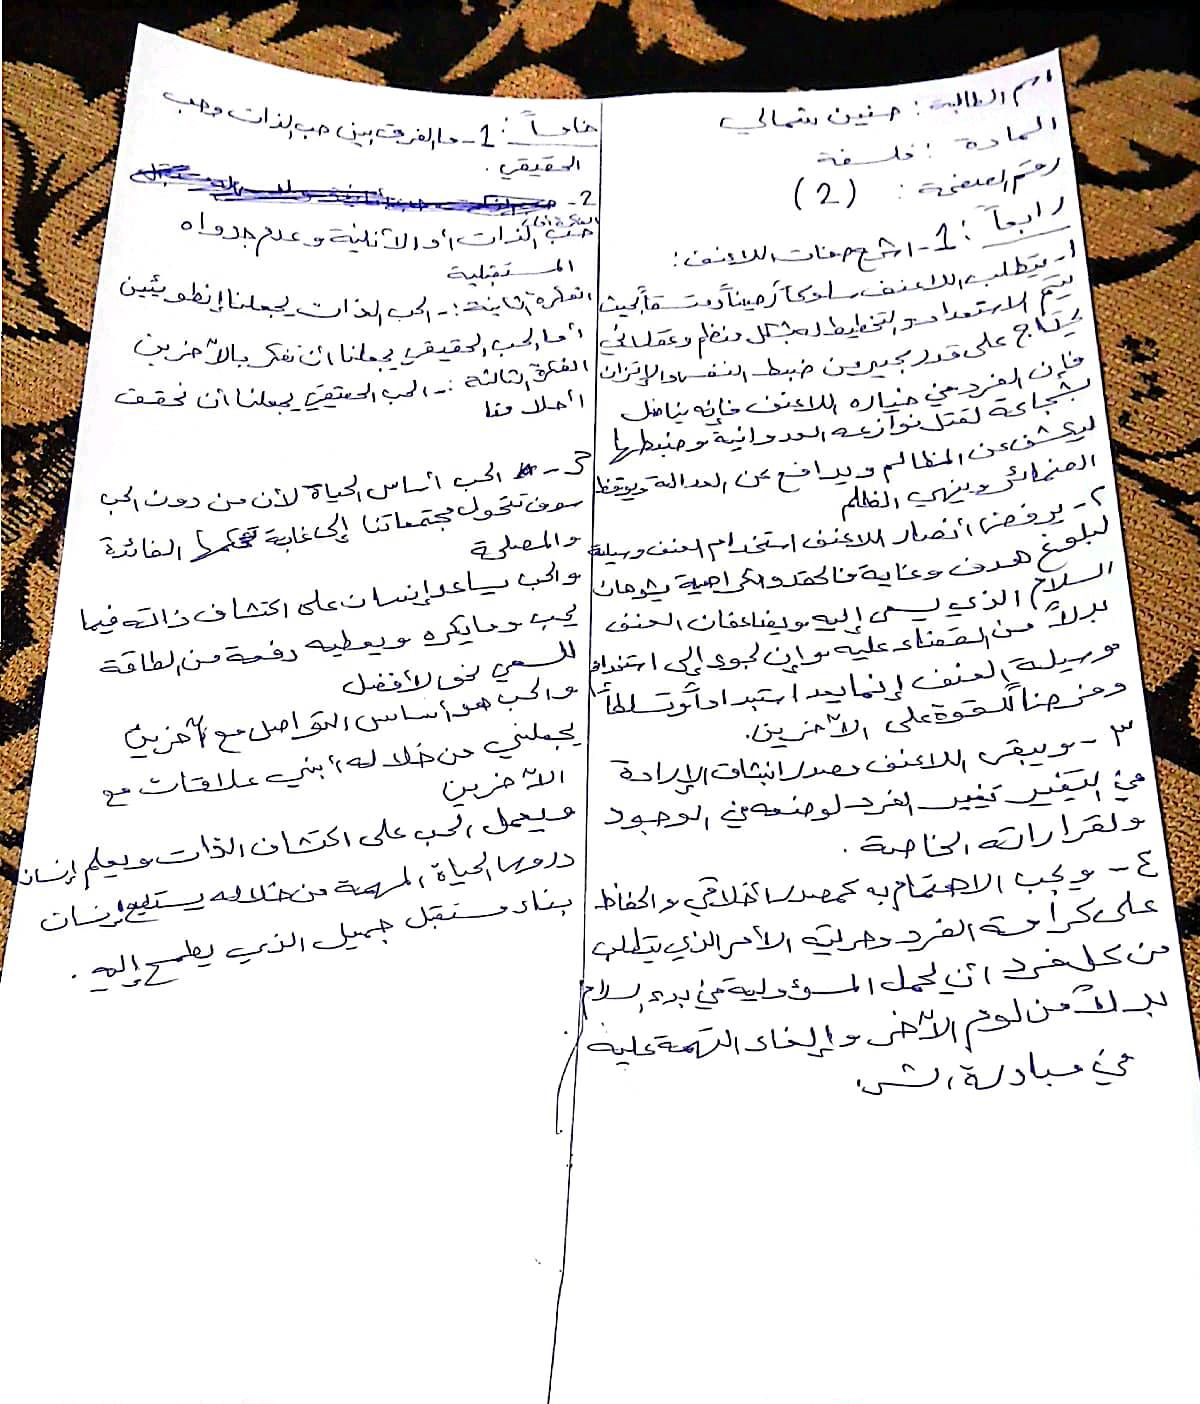 اسم الطالبة : حنين شمالي
المادة : فلسفة
رقم الصفحة : (2)
رابعاً : 1- اشرح صفات اللاعنف :
1- يتطلب اللاعنف سلوكاً رصيناً ومتسقاً بحيث
يتم الاستعداد والتخطيط له بشكل منظم وعقلاني
يحتاج على قدر كبير من ضبط النفس والإتزان
فإن الفرد في خياره اللاعنف فإنه يناضل
بشجاعة لقتل نوازعه العدوانية وضبطها
ليكشف عن المظالم ويدافع عن العدالة ويوقظ
الضمائر وينهي الظلم
٢- يرفض أنصار اللاعنف استخدام العنف وسيلة
لبلوغ هدف وغاية فالحقد والكراهية يشوهان
السلام الذي يسعى إليه ويضاعفان العنف
بدلاً من القضاء عليه وإن لجوء إلى استخدام
وسيلة العنف إنما يعد استبداداً وتسلطاً
وفرضاً للقوة على الآخرين.
٣- ويبقى اللاعنف مصدر انبثاق الإرادة
في التغيير تغيير الفرد لوضعه في الوجود
ولقراراته الخاصة .
٤- ويجب الاهتمام به كمصدر أخلاقي والحفاظ
على كرامة الفرد وحريته الأمر الذي يتطلب
من كل فرد أن يحمل المسؤولية في بدء السلام
بدلاً من لوم الآخر وإلقاء التهمة عليه
في مبادرة الشر.
خامساً : 1- ما الفرق بين حب الذات وحب
الحقيقي .
2-
الفكرة أولى
حب الذات أو الأنانية وعدم جدواه
المستقبلية
الفكرة الثانية :- الحب الذات يجعلنا إنطوئيين
أما الحب الحقيقي يجعلنا أن نفكر بالآخرين
الفكرة الثالثة :- الحب الحقيقي يجعلنا أن نحقق
أحلامنا
3- الحب أساس الحياة لأن من دون الحب
سوف تتحول مجتمعاتنا إلى غابة تحكمها الفائدة
والمصلحة
والحب يساعد إنسان على اكتشاف ذاته فيما
يحب وما يكره ويعطيه دفعة من الطاقة
للسعي نحو الأفضل
والحب هو أساس التواصل مع آخرين
يجعلني من خلاله أبني علاقات مع
الآخرين
ويعمل الحب على اكتشاف الذات ويعلم إنسان
دروس الحياة المهمة من خلاله يستطيع إنسان
بناء مستقبل جميل الذي يطمح إليه .